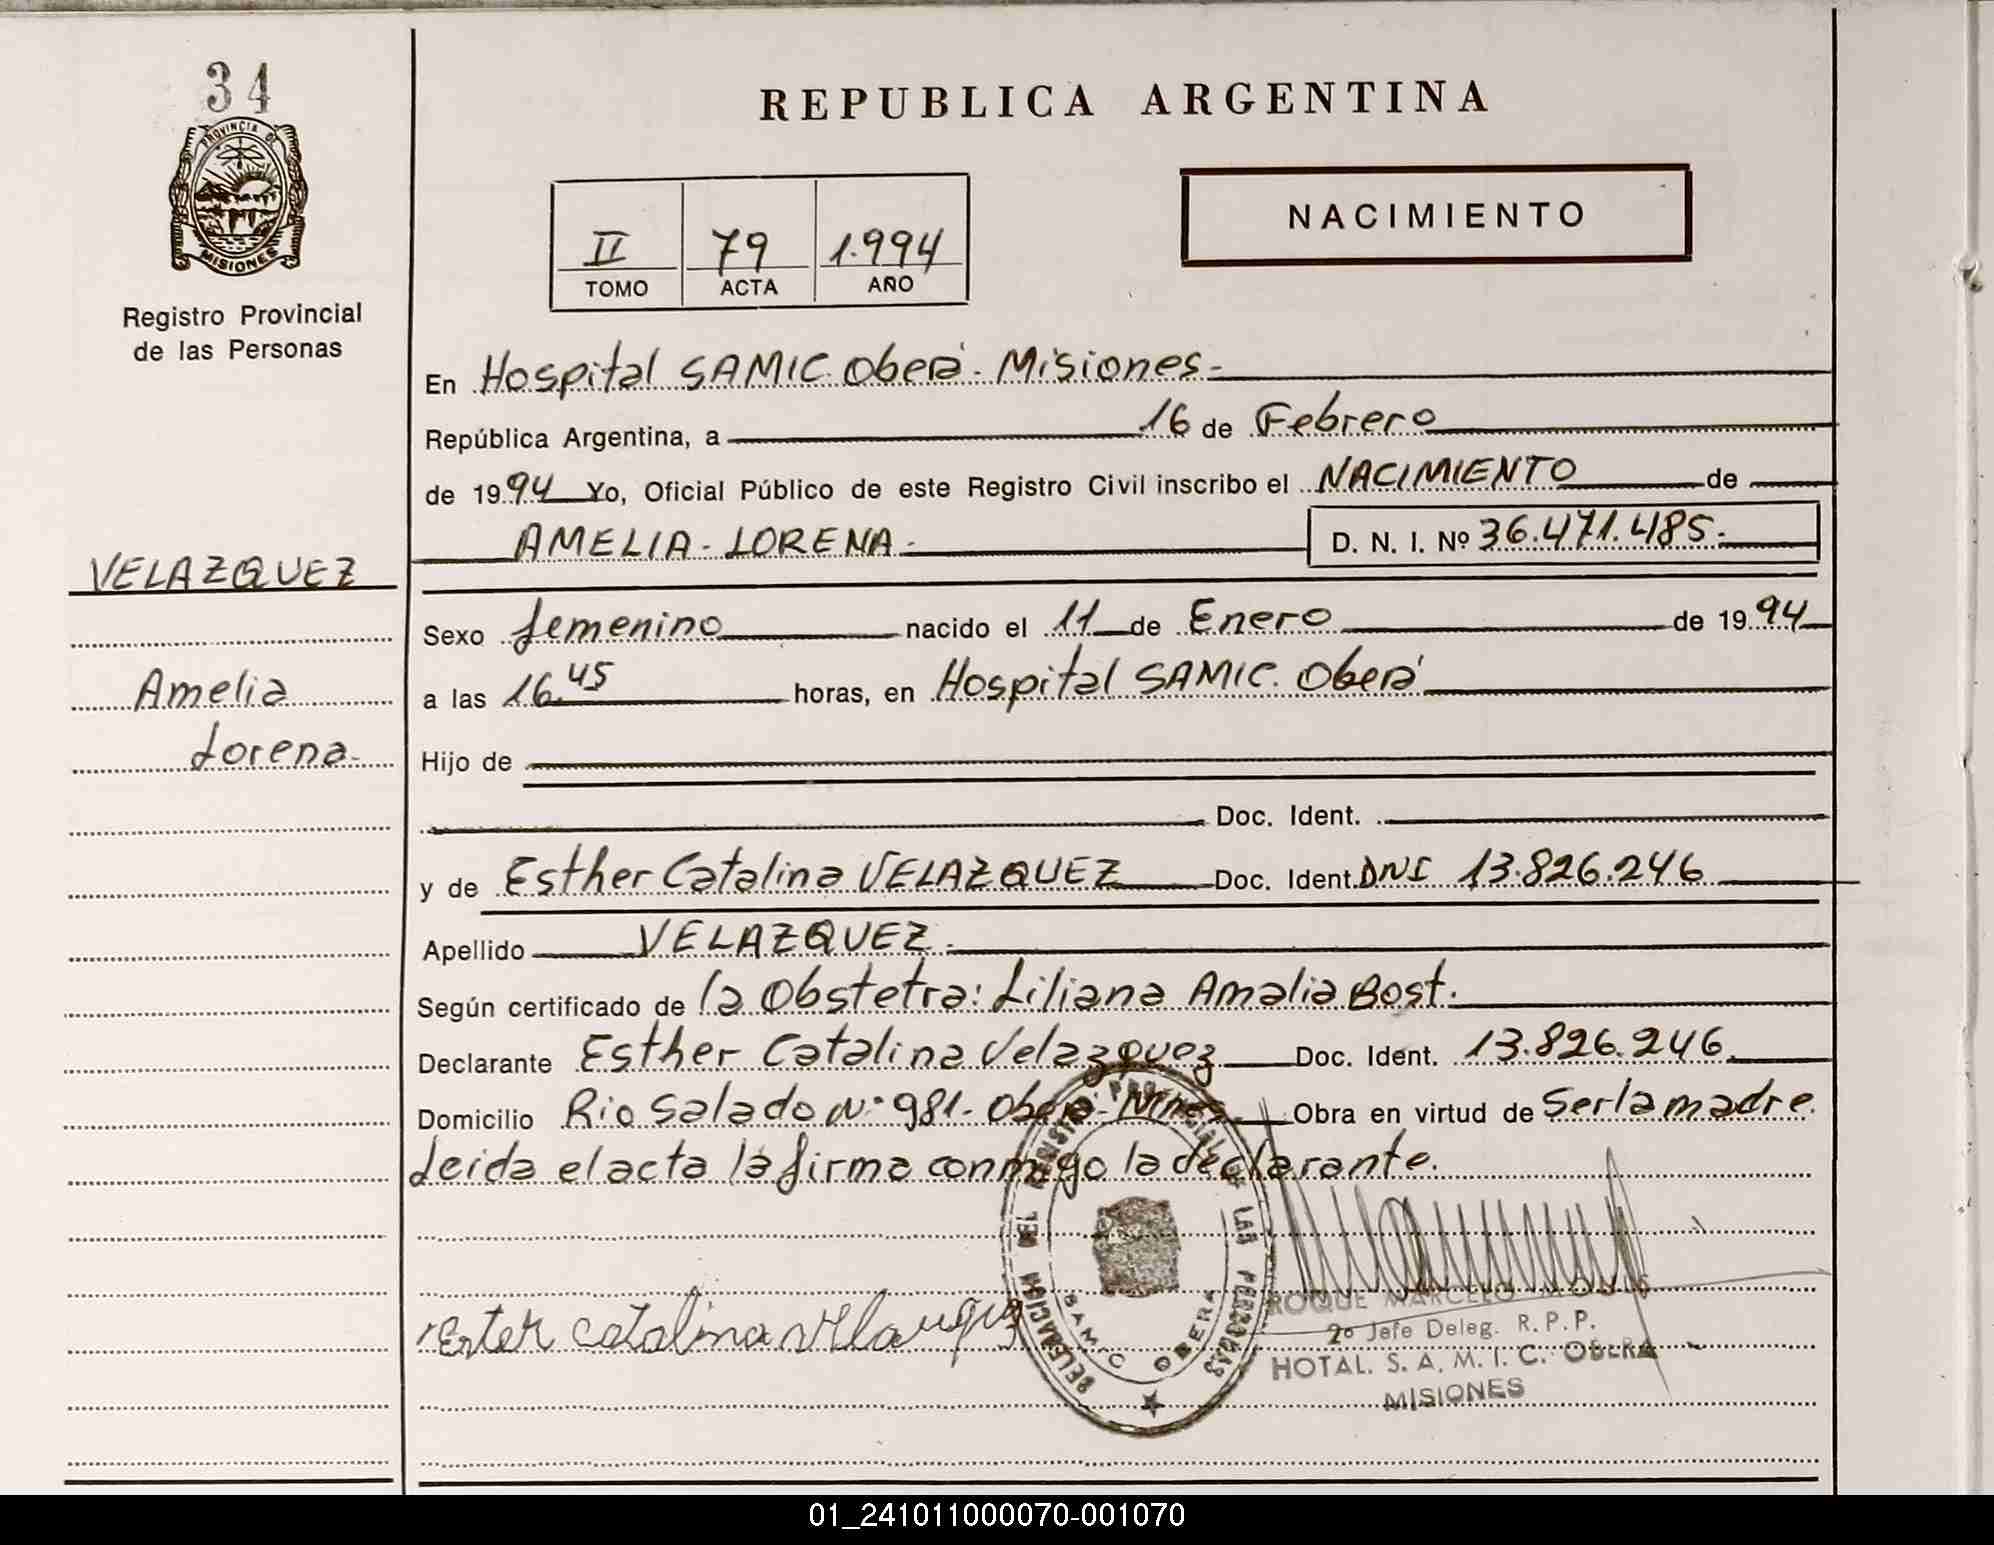 34
PROVINCIA DE
MISIONES
Registro Provincial
de las Personas
VELAZQUEZ
Amelia
Lorena.
REPUBLICA ARGENTINA
II 79 1.994
TOMO ACTA AÑO
NACIMIENTO
En Hospital SAMIC. Oberá. Misiones.
República Argentina, a 16 de Febrero
de 1994 Yo, Oficial Público de este Registro Civil inscribo el NACIMIENTO de
AMELIA - LORENA. D. N. I. Nº 36.471.485.
Sexo femenino nacido el 11 de Enero de 1994
a las 16.45 horas, en Hospital SAMIC. Oberá
Hijo de
Doc. Ident.
y de Esther Catalina VELAZQUEZ Doc. Ident. DNI 13.826.246
Apellido VELAZQUEZ.
Según certificado de la Obstetra: Liliana Amalia Bost.
Declarante Esther Catalina Velazquez Doc. Ident. 13.826.246.
Domicilio Rio Salado Nº 981. Oberá - Mnes. Obra en virtud de Ser la madre.
Leida el acta la firma conmigo la declarante.
Ester catalina
DELEGACION DEL REGISTRO PROVINCIAL DE LAS PERSONAS
SAMIC OBERA
ROQUE MARCELO
2º Jefe Deleg. R. P. P.
HOTAL. S. A. M. I. C. OBERA
MISIONES
01_241011000070-001070